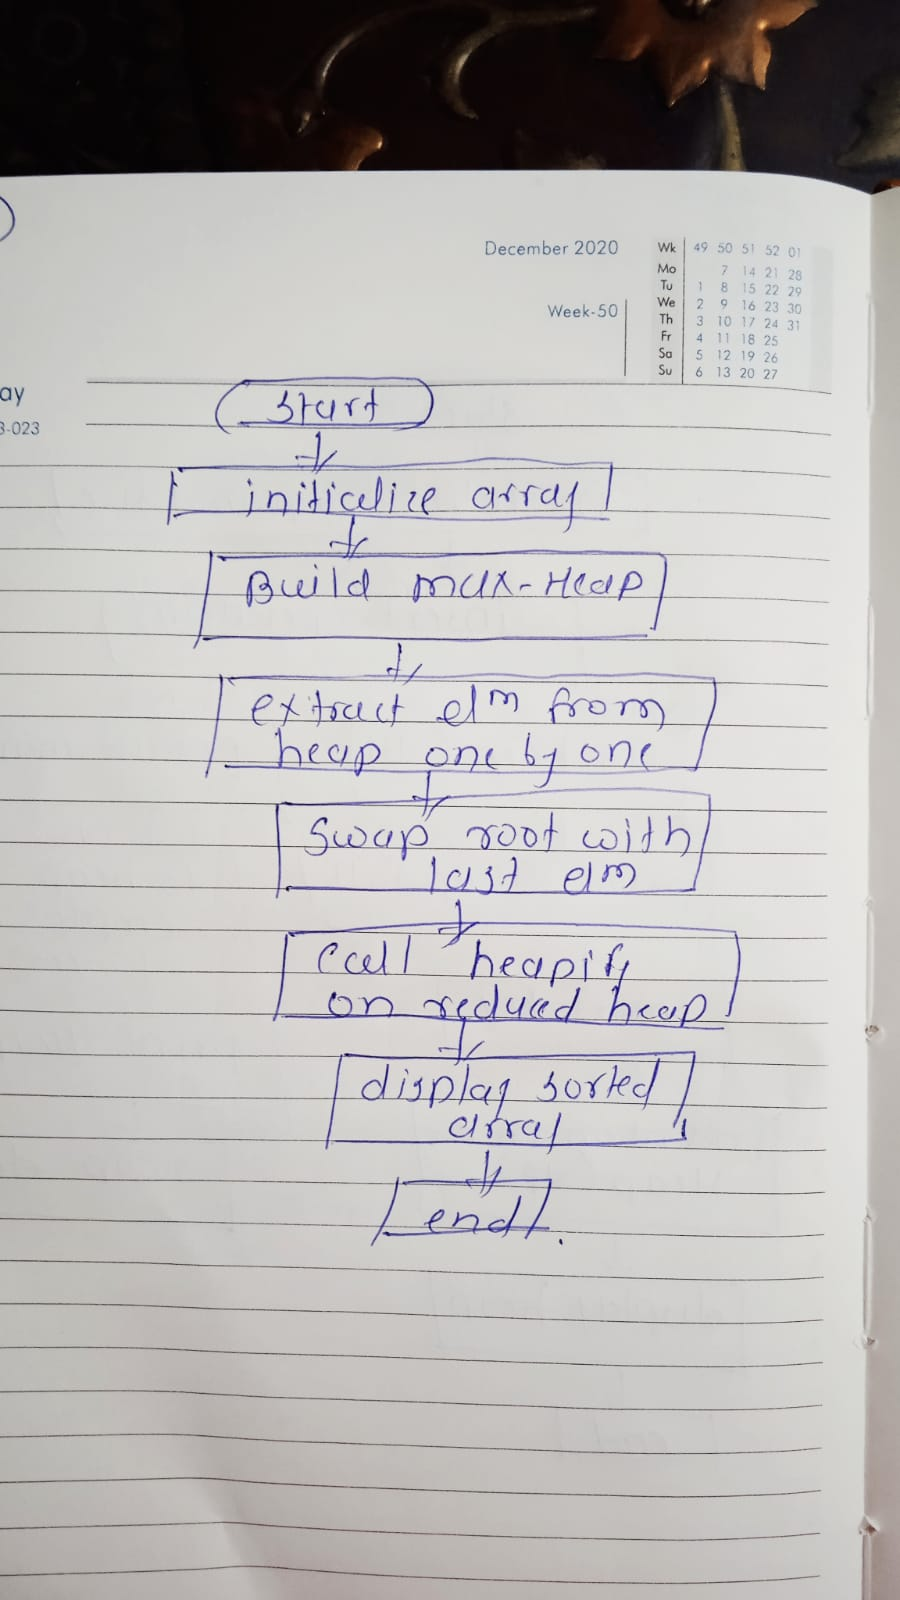 December 2020
Wk 49 50 51 52 01
Mo 7 14 21 28
Tu 1 8 15 22 29
We 2 9 16 23 30
Th 3 10 17 24 31
Fr 4 11 18 25
Sa 5 12 19 26
Su 6 13 20 27
Week-50
ay
3-023
Start
initialize array
Build max-Heap
extract elm from
heap one by one
Swap root with
last elm
Call heapify
on reduced heap
display sorted
array
end.